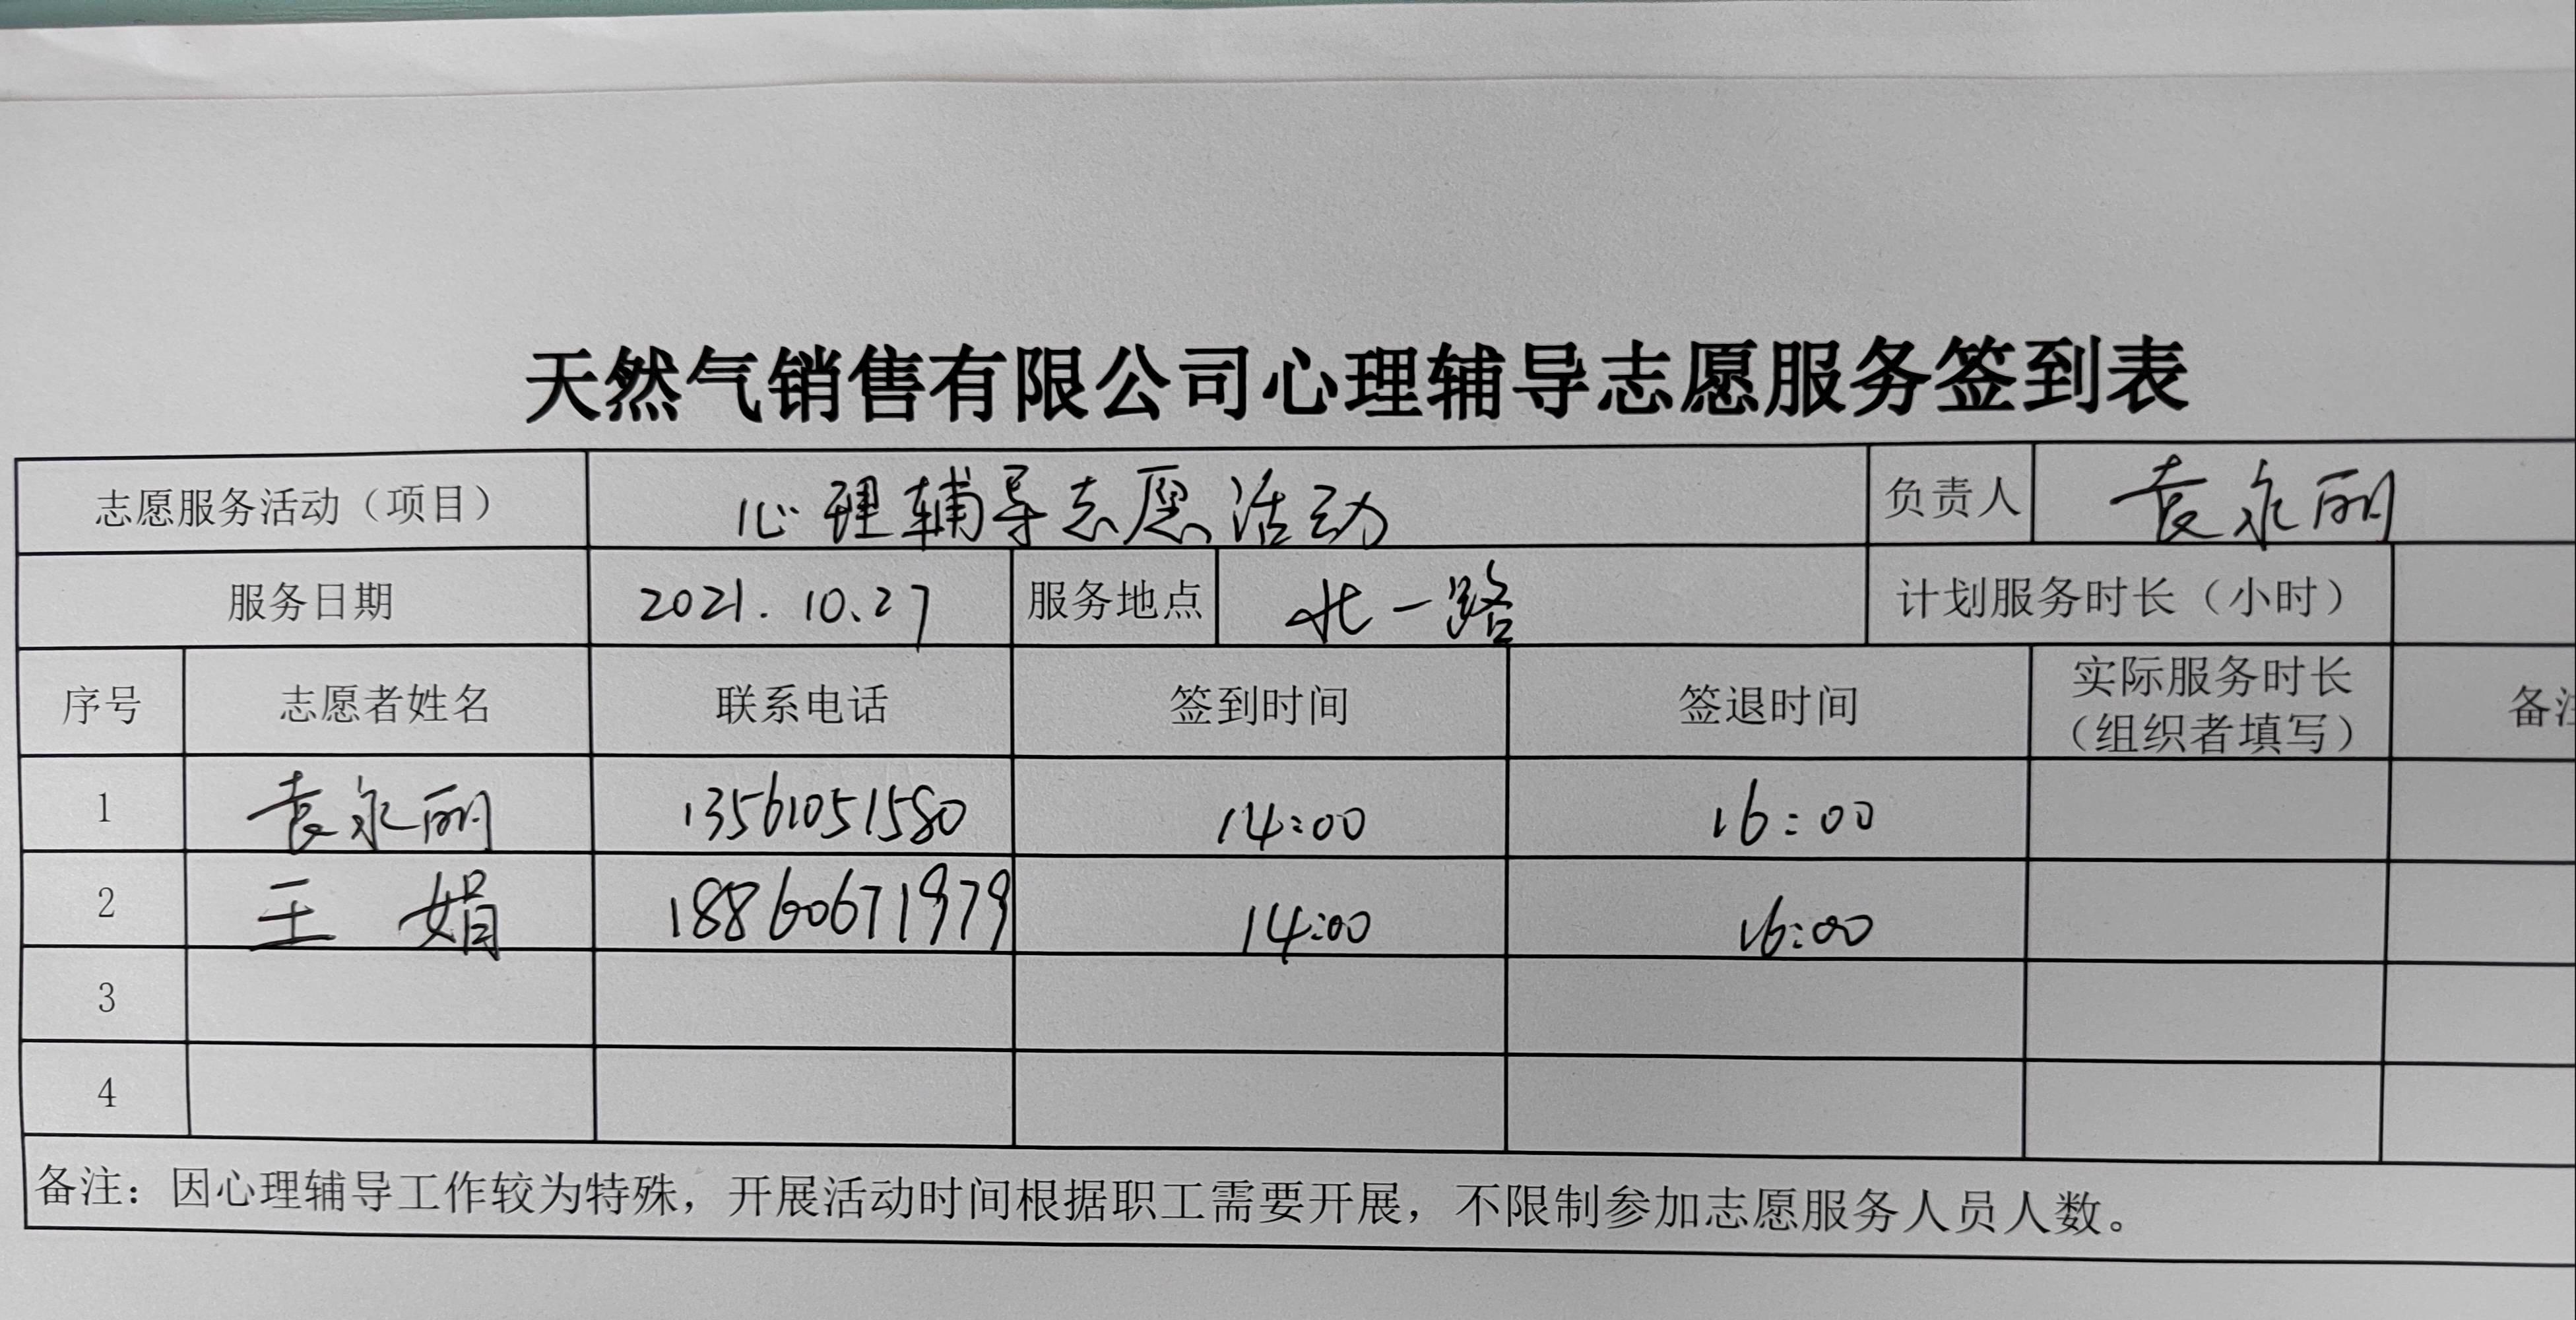 天然气销售有限公司心理辅导志愿服务签到表
志愿服务活动（项目） 心理辅导志愿活动 负责人 袁永丽
服务日期 2021.10.27 服务地点 北一路 计划服务时长（小时）
序号 志愿者姓名 联系电话 签到时间 签退时间 实际服务时长（组织者填写） 备注
1 袁永丽 13561051580 14:00 16:00
2 王娟 18860671979 14:00 16:00
3
4
备注：因心理辅导工作较为特殊，开展活动时间根据职工需要开展，不限制参加志愿服务人员人数。